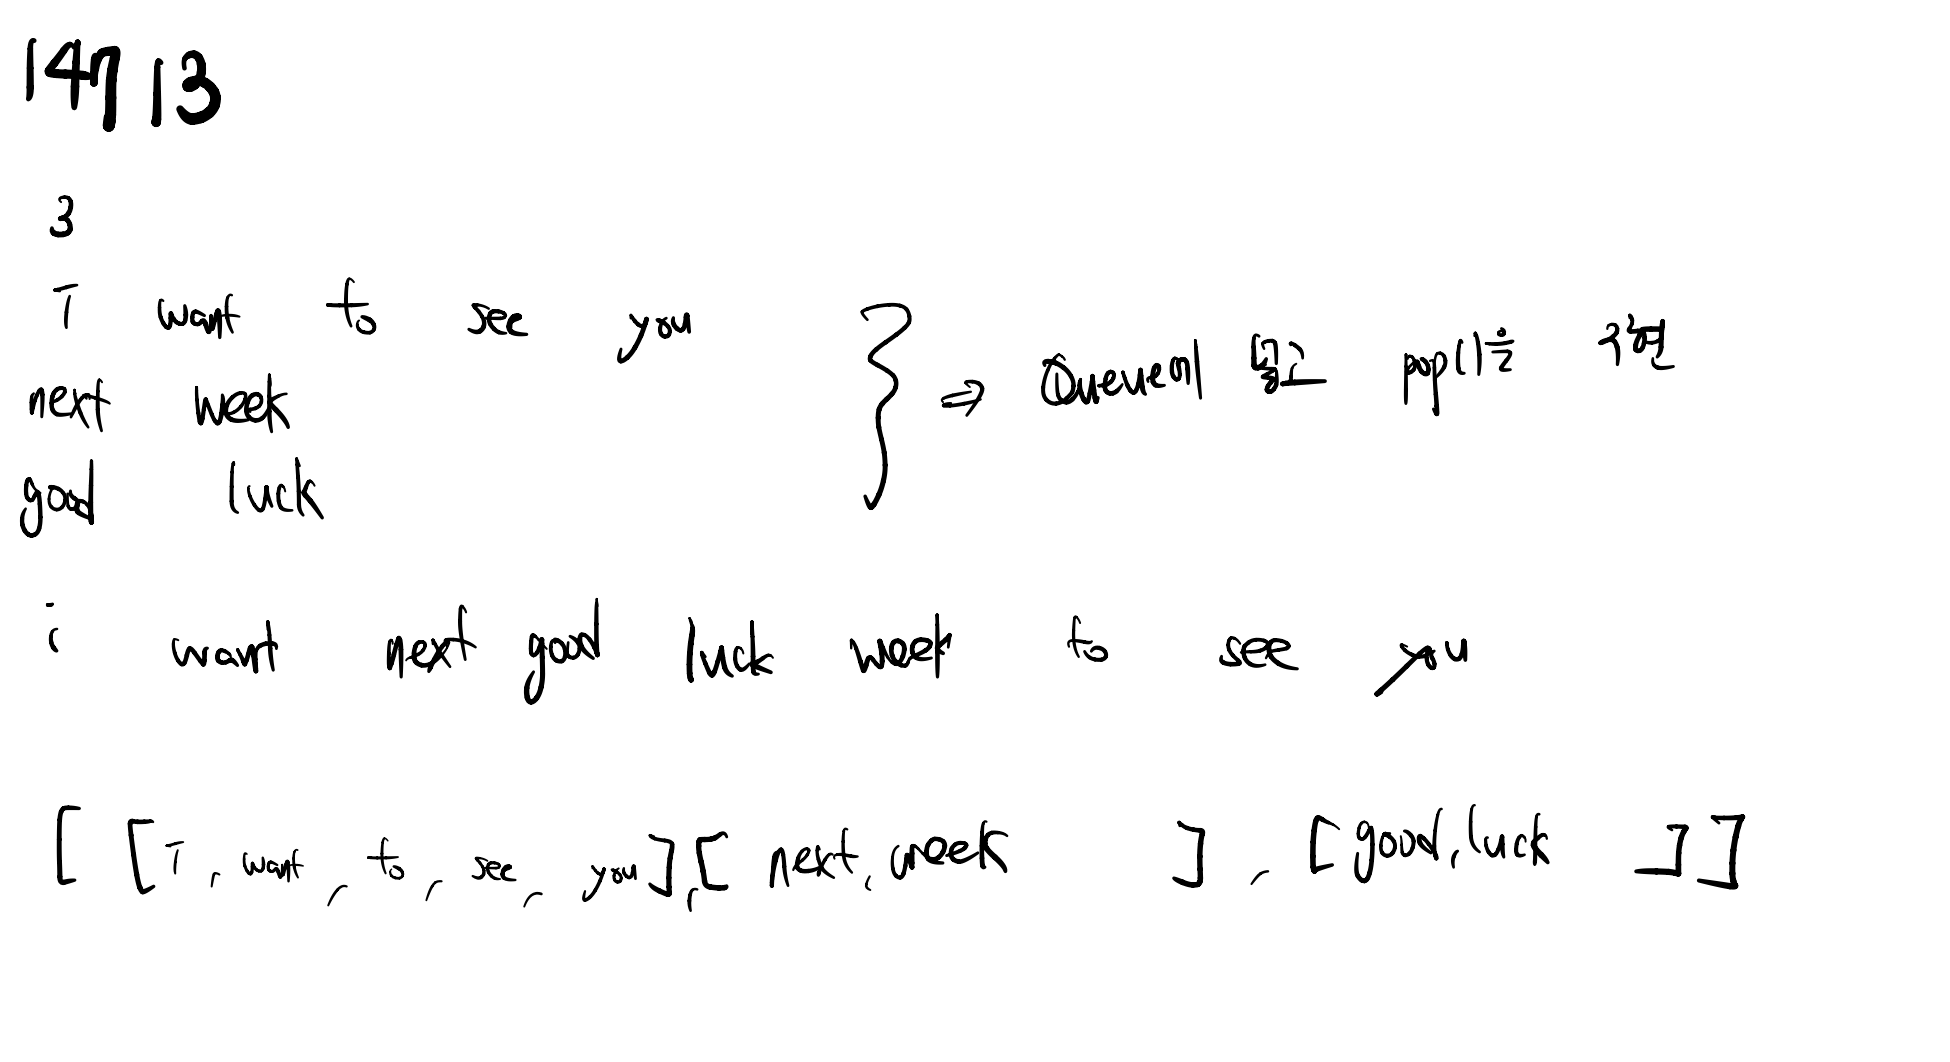 14713
3
I want to see you
next week
good luck
} ⇒ Queue에 넣고 pop()을 구현
i want next good luck week to see you
[ [I, want, to, see, you], [next, week], [good, luck]]